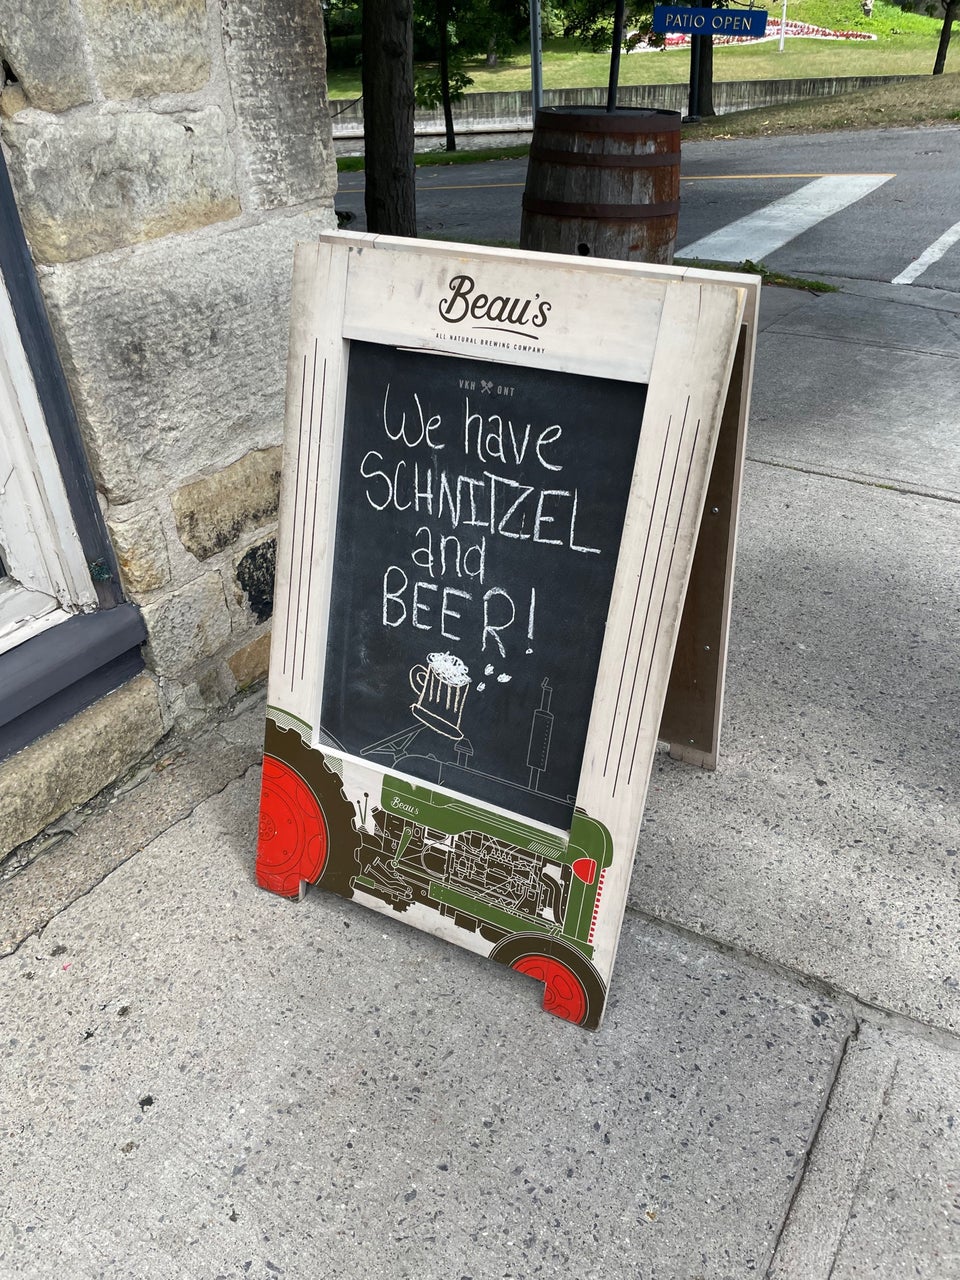 PATIO OPEN
Beau's
ALL NATURAL BREWING COMPANY
VKH ONT
We have
SCHNITZEL
and
BEER!
Beau's